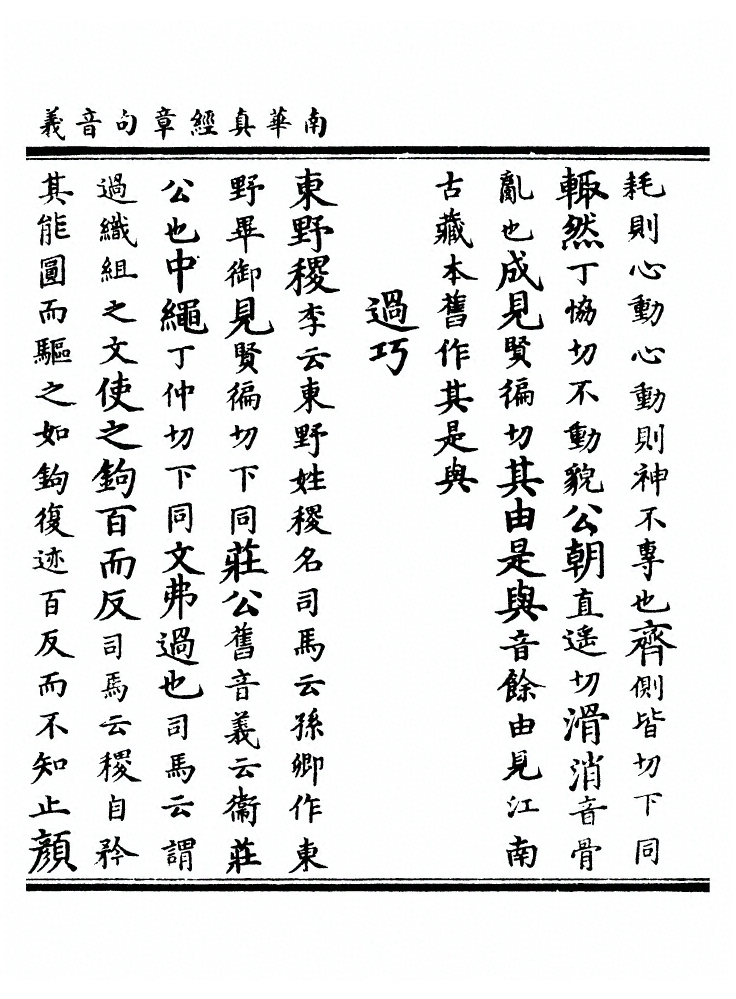 南華真經章句音義
耗則心動心動則神不專也齊側皆切下同
輙然丁恊切不動貌公朝直遥切滑消音骨
亂也成見賢徧切其由是與音餘由見江南
古藏本舊作其是與
過巧
東野稷李云東野姓稷名司馬云孫卿作東
野畢御見賢徧切下同莊公舊音義云衞莊
公也中繩丁仲切下同文弗過也司馬云謂
過織組之文使之鉤百而反司馬云稷自矜
其能圓而驅之如鉤復迹百反而不知止顔